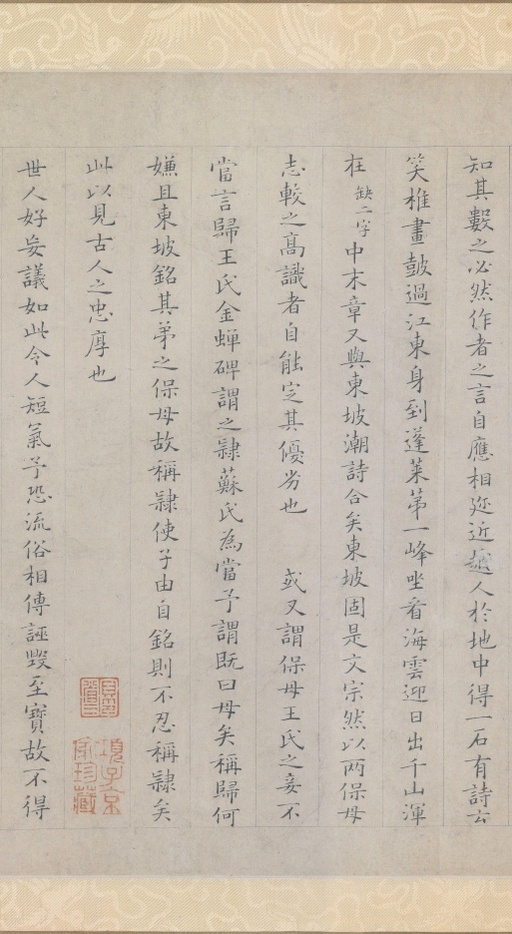 知其數之必然作者之言自應相邇近越人於地中得一石有詩云
笑椎畫鼓過江東身到蓬萊第一峰坐看海雲迎日出千山渾
在缺二字中末章又與東坡潮詩合矣東坡固是文宗然以两保母
志較之高識者自能定其優劣也 或又謂保母王氏之妾不
當言歸王氏金蟬碑謂之隸蘇氏為當予謂既曰母矣稱歸何
嫌且東坡銘其弟之保母故稱隸使子由自銘則不忍稱隸矣
此以見古人之忠厚也
世人好妄議如此令人短氣予恐流俗相傳誣毀至寶故不得
項子京
家珍藏